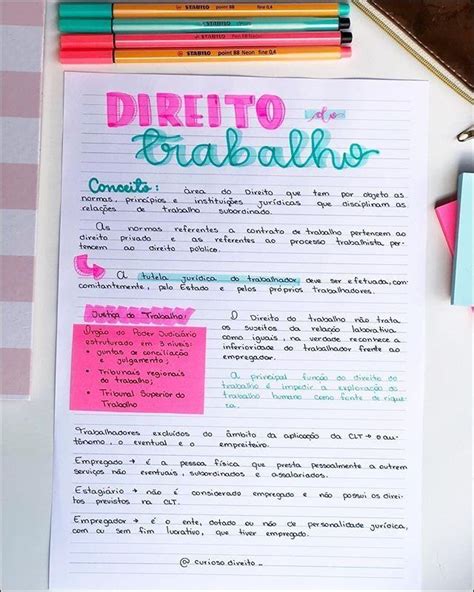 STABILO point 88 fine 0,4
STABILO point 88 Neon fine 0,4
STABILO point 88 Neon fine 0,4
DIREITO do
trabalho
Conceito: área do Direito que tem por objeto as
normas, princípios e instituições jurídicas que disciplinam as
relações de trabalho subordinado.
As normas referentes a contrato de trabalho pertencem ao
direito privado e as referentes ao processo trabalhista, per-
tencem ao direito público.
A tutela jurídica do trabalhador, deve ser efetuada, con-
comitantemente, pelo Estado e pelos próprios trabalhadores.
Justiça do Trabalho:
Órgão do Poder Judiciário
estruturado em 3 níveis:
• juntas de conciliação
e julgamento;
• Tribunais regionais
do trabalho;
• Tribunal Superior do
Trabalho
O Direito do trabalho não trata
os sujeitos da relação laborativa
como iguais, na verdade reconhece a
inferioridade do trabalhador frente ao
empregador.
A principal função do direito do
trabalho é impedir a exploração do
trabalho humano como fonte de rique-
za.
Trabalhadores excluídos do âmbito da aplicação da CLT → o au-
tônomo, o eventual e o empreiteiro.
Empregado → é a pessoa física que presta pessoalmente a outrem
serviços não eventuais, subordinados e assalariados.
Estagiário → não é considerado empregado e não possui os direi-
tos previstos na CLT.
Empregador → é o ente, dotado ou não de personalidade jurídica,
com ou sem fim lucrativo, que tiver empregado.
@ curioso direito_